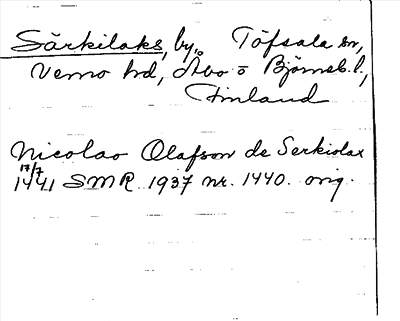 Särkilaks, by. Töfsala sn,
Vemo hd, Åbo o Björneb. l.,
Finland
Nicolao Olafson de Serkiolax
17/7
1441 SMR 1937 nr. 1440. orig.